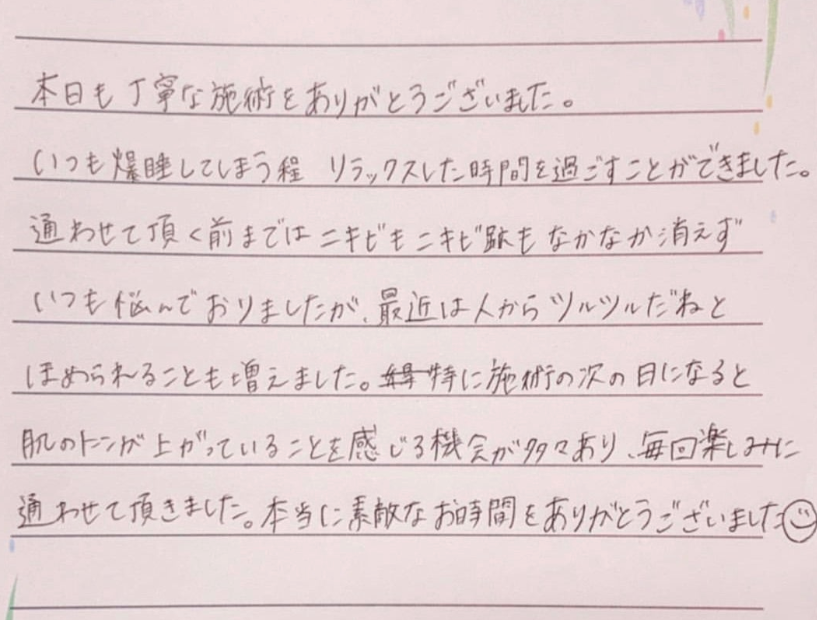 本日も丁寧な施術をありがとうございました。
いつも爆睡してしまう程 リラックスした時間を過ごすことができました。
通わせて頂く前まではニキビもニキビ跡もなかなか消えず
いつも悩んでおりましたが、最近は人からツルツルだねと
ほめられることも増えました。特に施術の次の日になると
肌のトーンが上がっていることを感じる機会が多々あり、毎回楽しみに
通わせて頂きました。本当に素敵なお時間をありがとうございました☺